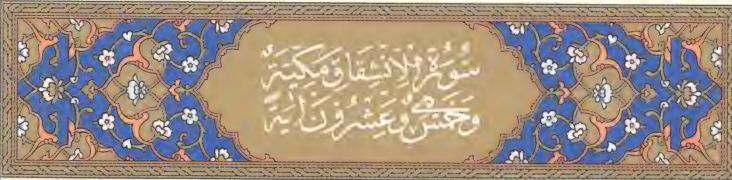 سُورَةُ الِانْشِقَاقِ مَكِّيَّةٌ
وَخَمْسٌ وَعِشْرُونَ آيَةً